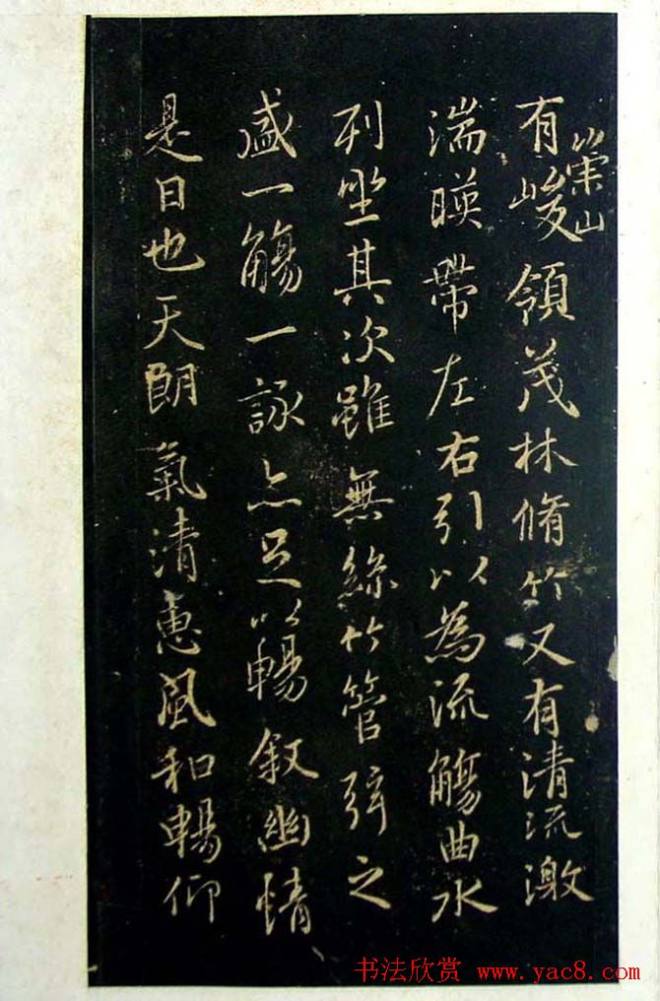 有崇山峻領茂林脩竹又有清流激
湍暎帶左右引以為流觴曲水
列坐其次雖無絲竹管弦之
盛一觴一詠亦足以暢叙幽情
是日也天朗氣清惠風和暢仰
书法欣赏 www.yac8.com